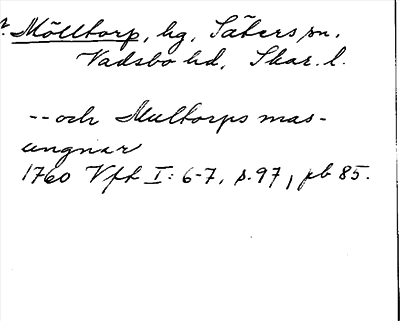 Mölltorp, hg, Säters sn.
Vadsbo hd, Skar. l.
-- och Multorps mas-
ungnar
1760 Vfh I: 6-7, s. 97, pb 85.